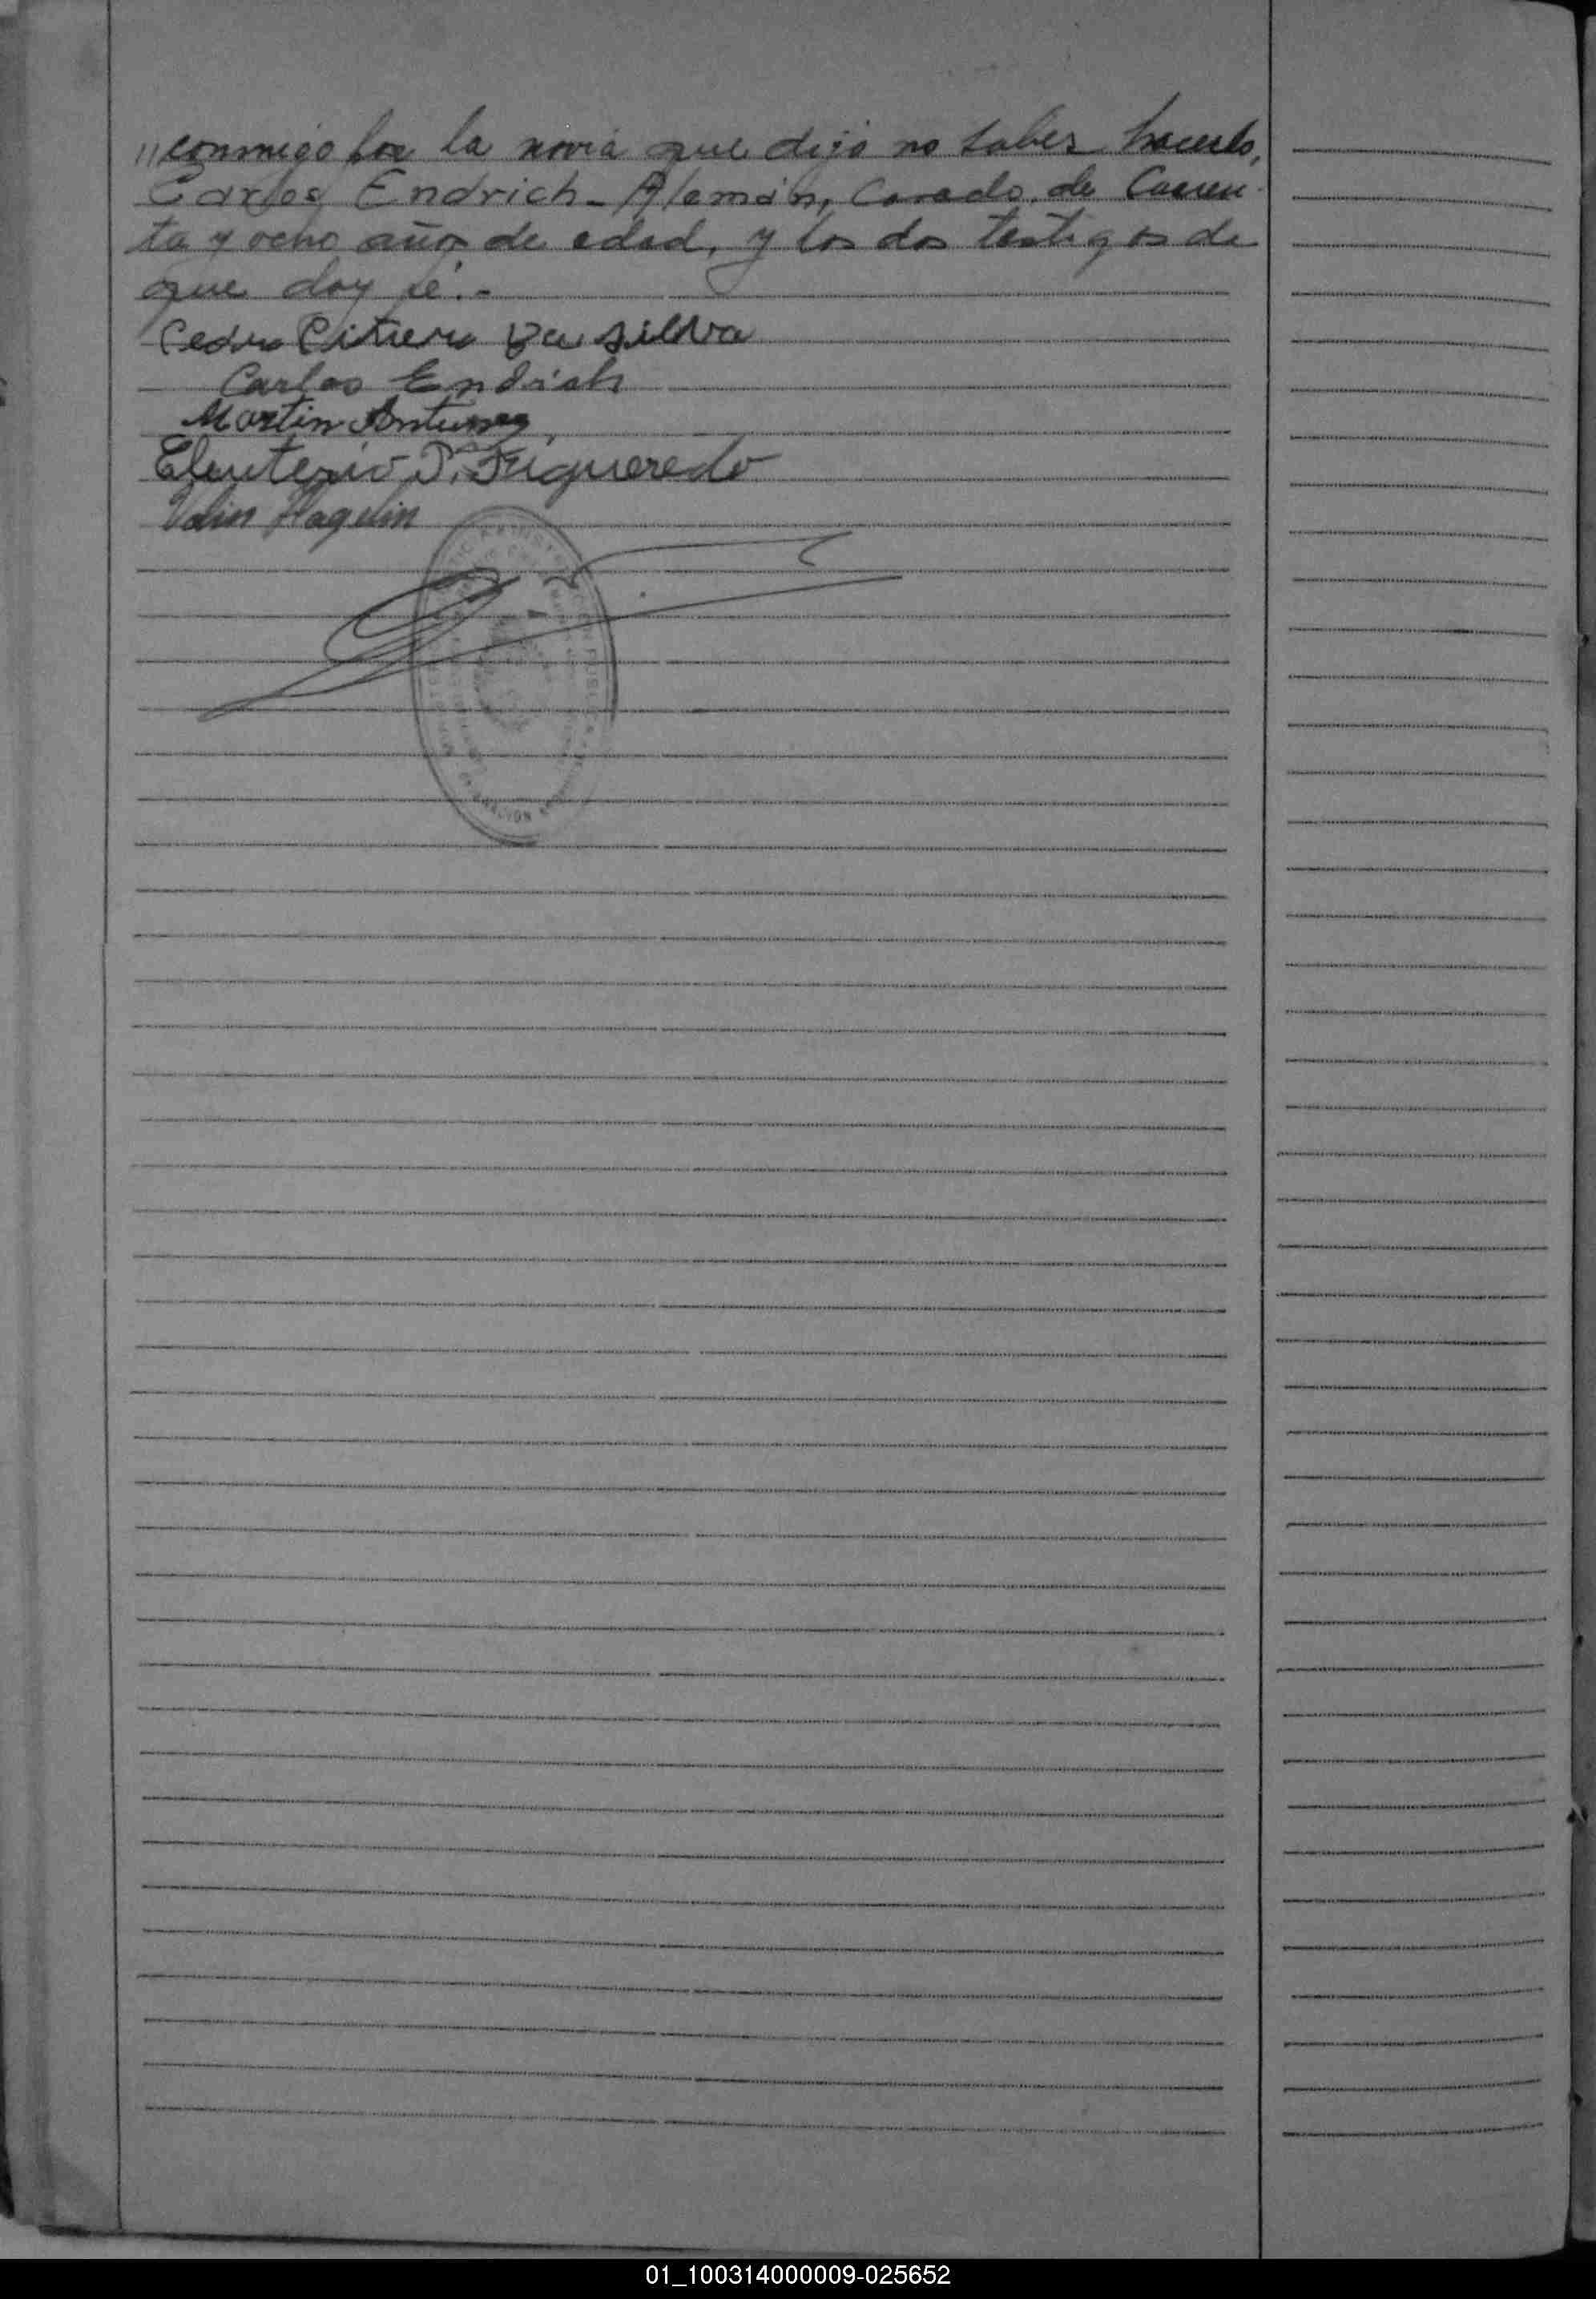 "conmigo por la novia que dijo no saber hacerlo,
Carlos Endrich - Alemán, Casado, de Cuaren-
ta y ocho años de edad, y los dos testigos de
que doy fé.-
Pedro da Silva
Carlos Endrich
Martin Antunez
Eleuterio P. Figueredo
Hagelin
01_100314000009-025652